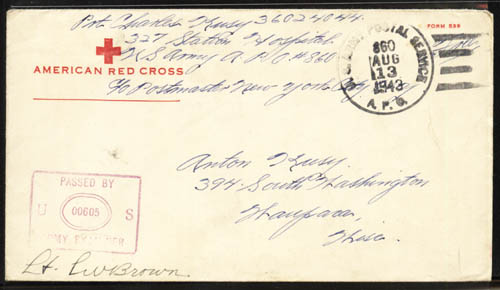 Pvt. Charles Krusy 36024044
327 Station Hospital
U S Army A. P. O. #860
c/o Postmaster New York City, N.Y.
AMERICAN RED CROSS
FORM 539
Free
U.S. ARMY POSTAL SERVICE
860
AUG
13
1943
A. P. O.
Anton Krusy
394 South Washington
Waupaca,
Wisc.
PASSED BY
U 00605 S
ARMY EXAMINER
Lt. CW Brown